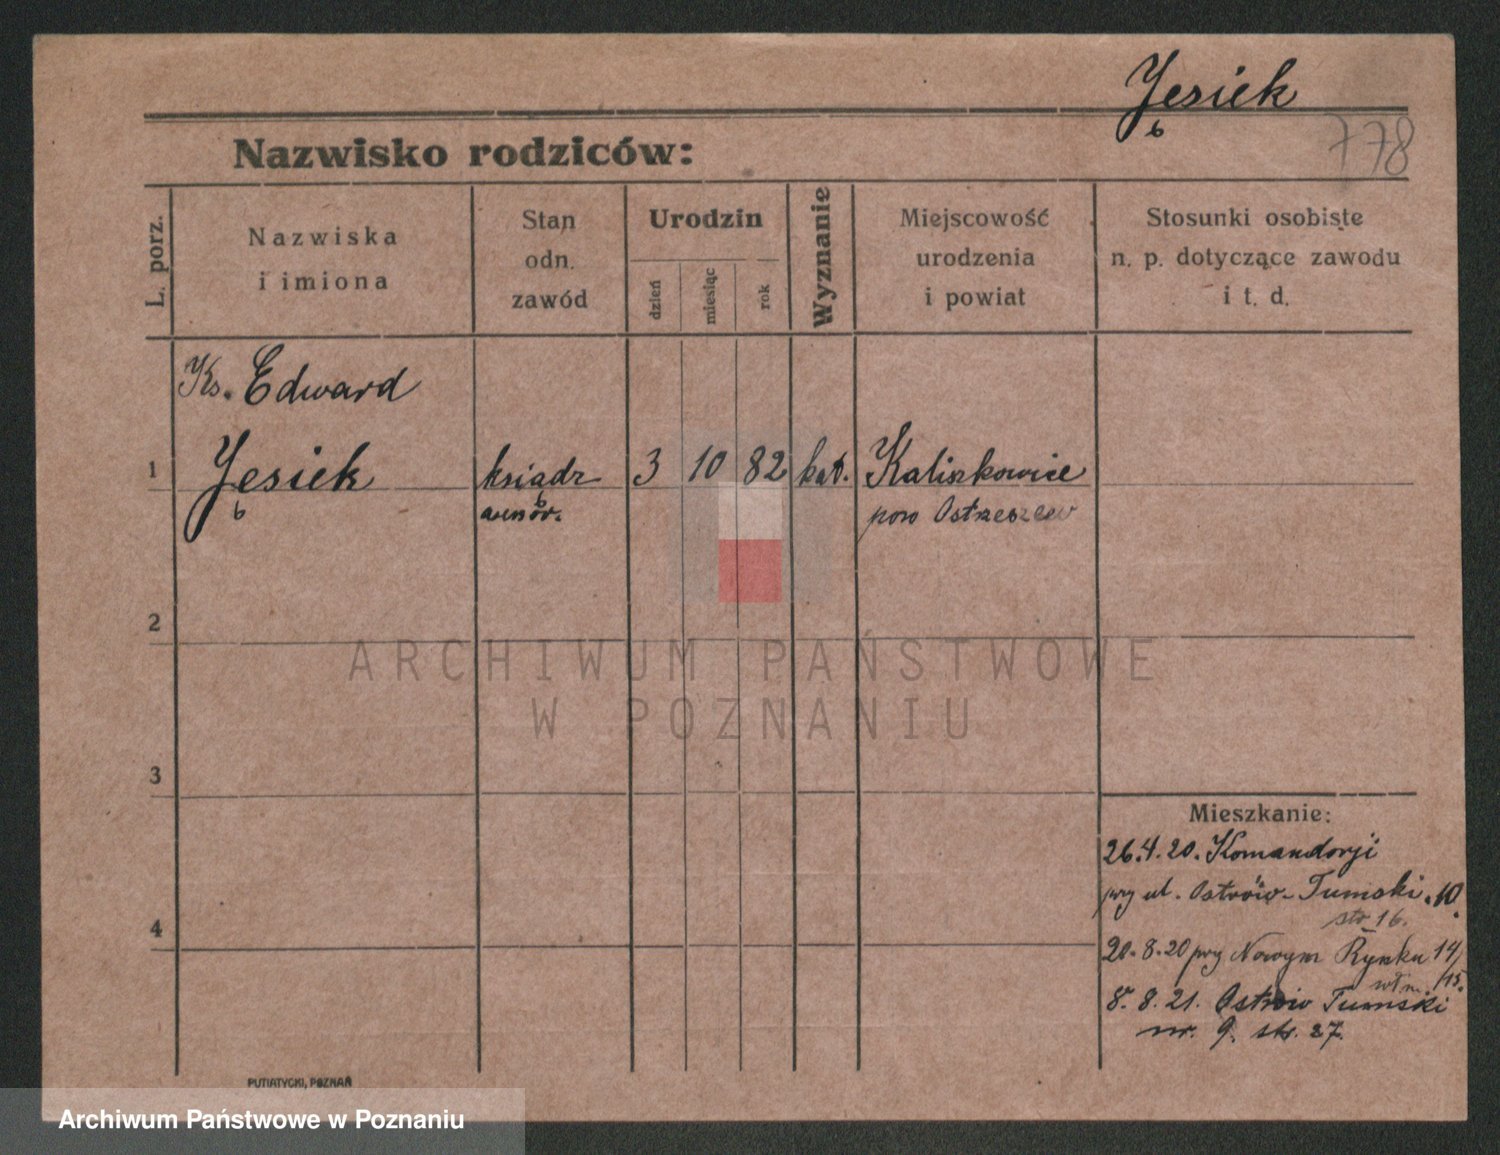 Jesiek
6
778
Nazwisko rodziców:
L. porz.
Nazwiska
i imiona
Stan
odn.
zawód
Urodzin
dzień
miesiąc
rok
Wyznanie
Miejscowość
urodzenia
i powiat
Stosunki osobiste
n. p. dotyczące zawodu
i t. d.
Ks. Edward
1 Jesiek ksiądz 3 10 82 kat. Kaliszkowice
6 pow Ostrzeszew
2
3
4
Mieszkanie:
26.4.20. Komandorji
przy ul. Ostrów-Tumski. 10.
str 16.
20.8.20 przy Nowym Rynku 14/15.
8. 8. 21. Ostrów Tumski
nr. 9. str. 27.
PUTIATYCKI, POZNAŃ
ARCHIWUM PAŃSTWOWE
W POZNANIU
Archiwum Państwowe w Poznaniu